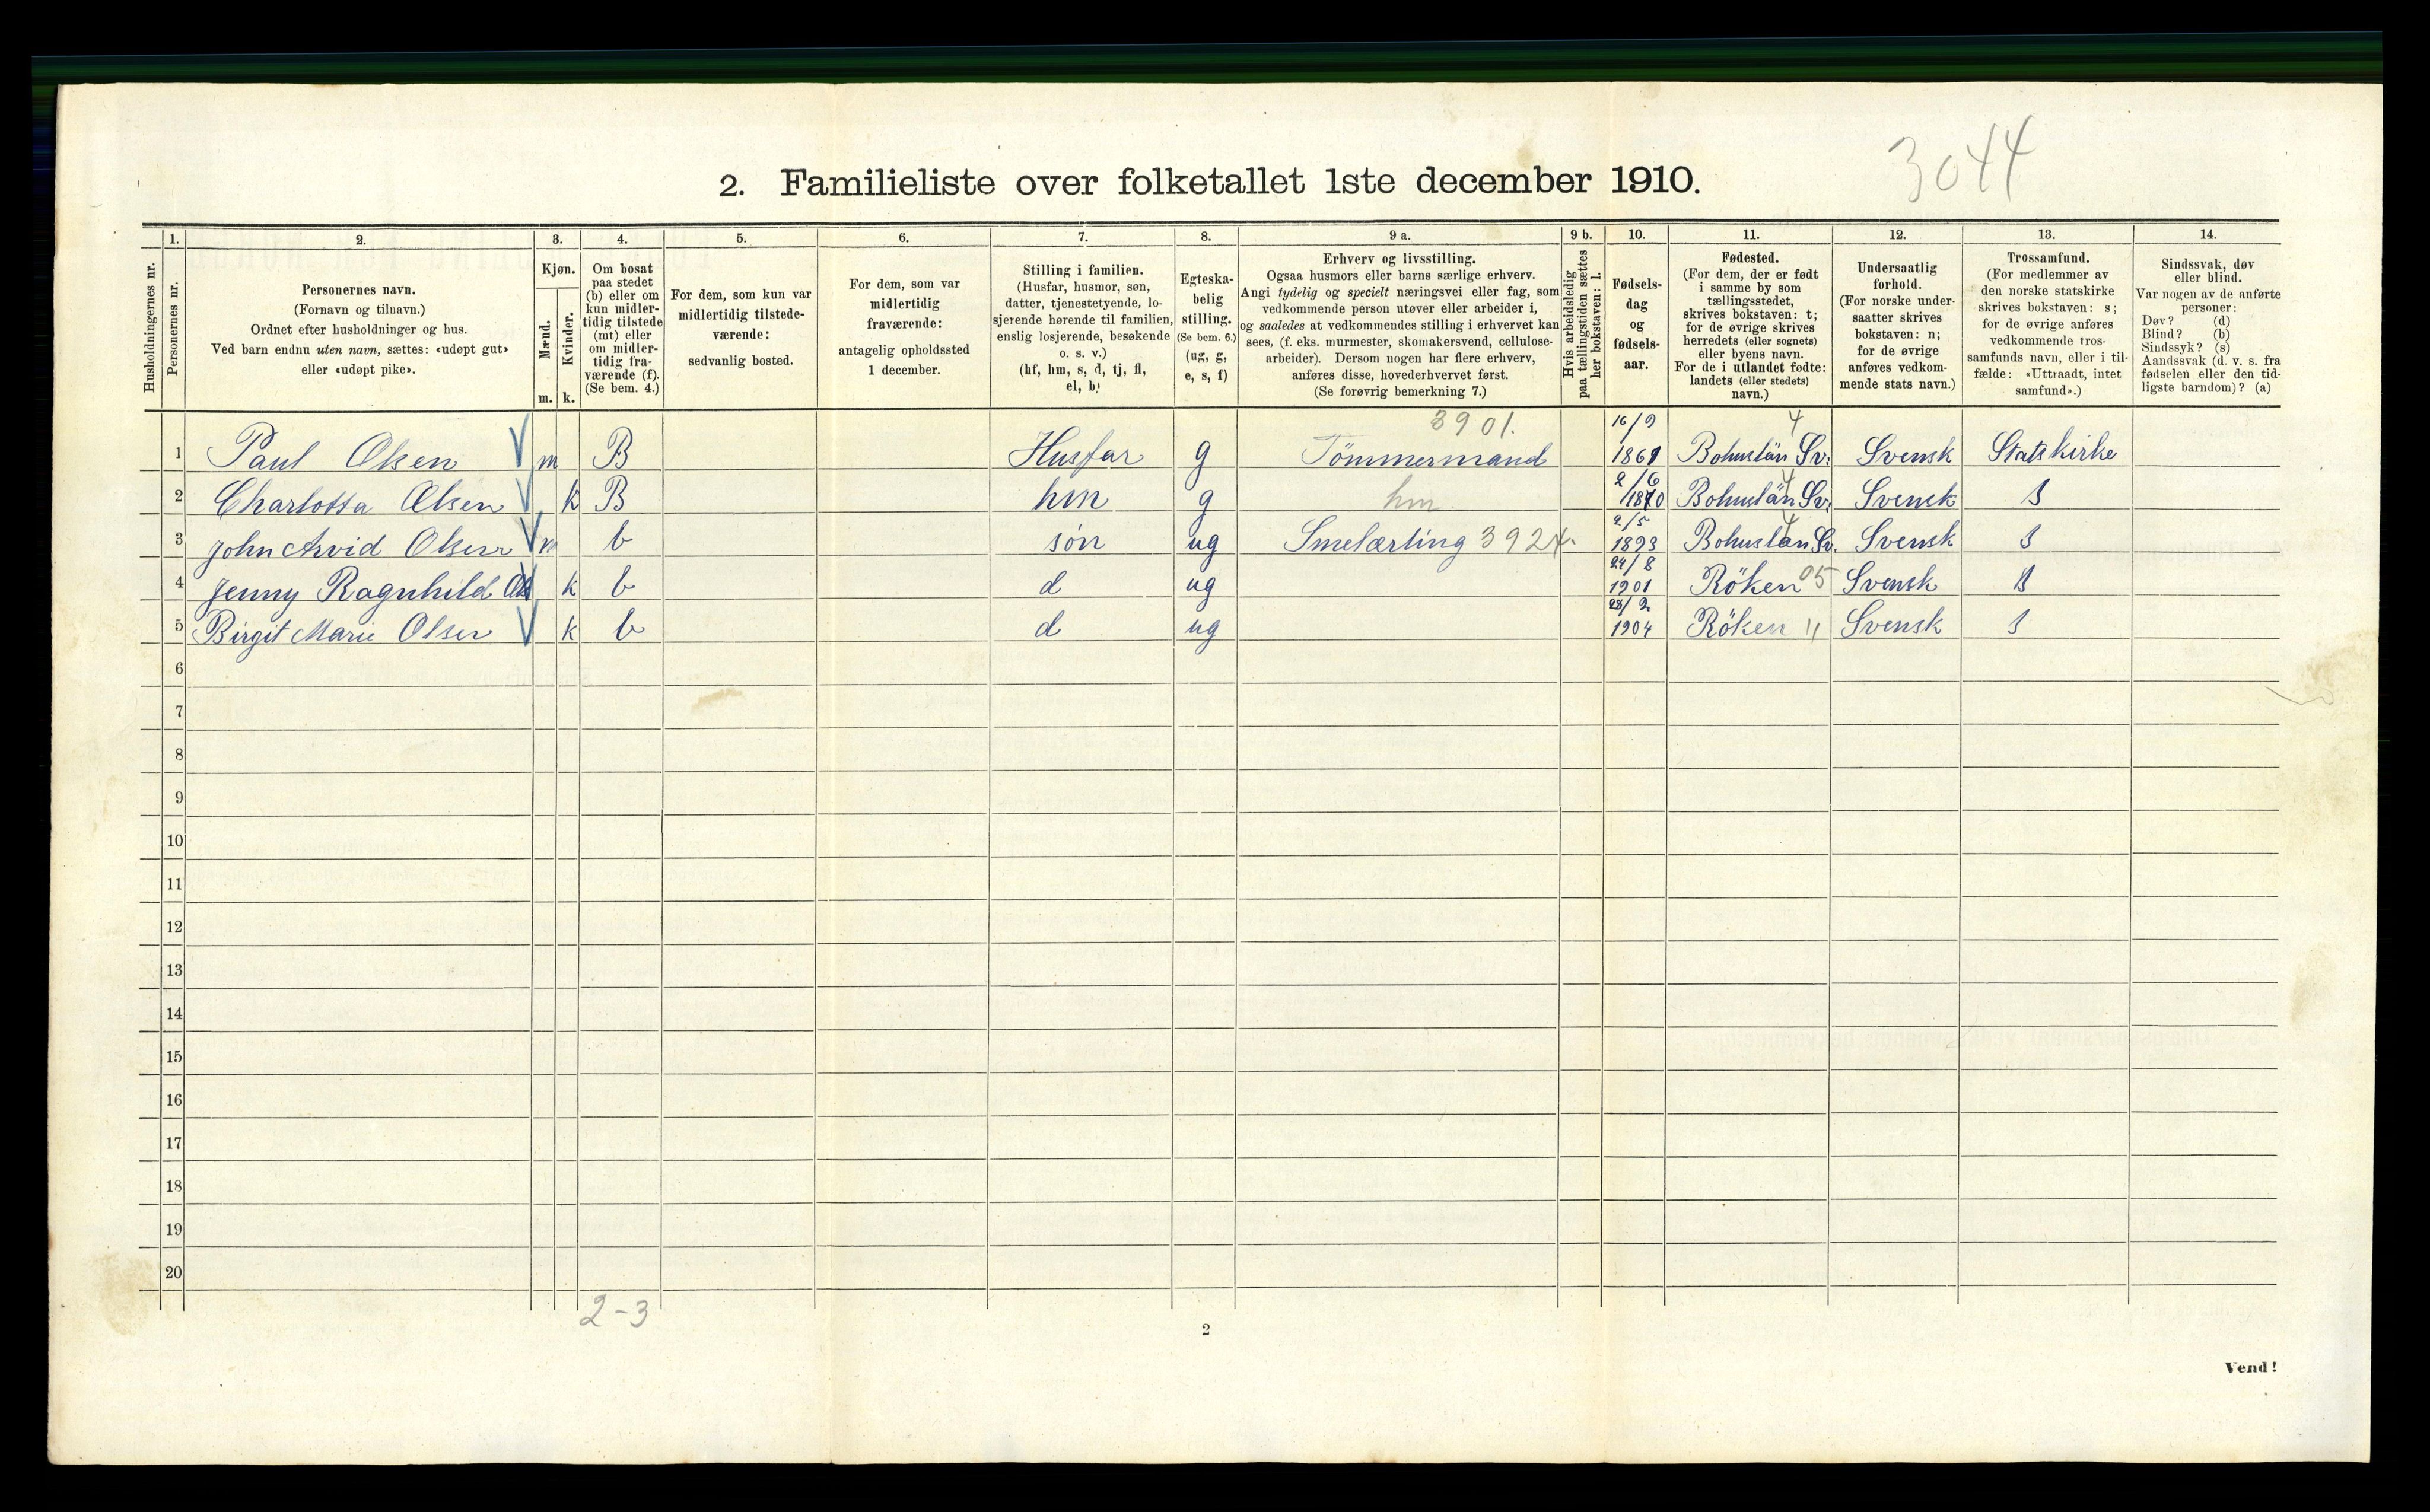 3044
2. Familieliste over folketallet 1ste december 1910.
Husholdningernes nr.
1.
Personernes nr.
2.
Personernes navn.
(Fornavn og tilnavn.)
Ordnet efter husholdninger og hus.
Ved barn endnu uten navn, sættes: «udøpt gut»
eller «udøpt pike».
3.
Kjøn.
Mænd.
Kvinder.
m. k.
4.
Om bosat
paa stedet
(b) eller om
kun midler-
tidig tilstede
(mt) eller
om midler-
tidig fra-
værende (f).
(Se bem. 4.)
5.
For dem, som kun var
midlertidig tilstede-
værende:
sedvanlig bosted.
6.
For dem, som var
midlertidig
fraværende:
antagelig opholdssted
1 december.
7.
Stilling i familien.
(Husfar, husmor, søn,
datter, tjenestetyende, lo-
sjerende hørende til familien,
enslig losjerende, besøkende
o. s. v.)
(hf, hm, s, d, tj, fl,
el, b)
8.
Egteska-
belig
stilling.
(Se bem. 6.)
(ug, g,
e, s, f)
9 a.
Erhverv og livsstilling.
Ogsaa husmors eller barns særlige erhverv.
Angi tydelig og specielt næringsvei eller fag, som
vedkommende person utøver eller arbeider i,
og saaledes at vedkommendes stilling i erhvervet kan
sees, (f. eks. murmester, skomakersvend, cellulose-
arbeider). Dersom nogen har flere erhverv,
anføres disse, hovederhvervet først.
(Se forøvrig bemerkning 7.)
9 b.
Hvis arbeidsledig
paa tællingstiden sættes
her bokstaven: l.
10.
Fødsels-
dag
og
fødsels-
aar.
11.
Fødested.
(For dem, der er født
i samme by som
tællingsstedet,
skrives bokstaven: t;
for de øvrige skrives
herredets (eller sognets)
eller byens navn.
For de i utlandet fødte:
landets (eller stedets)
navn.)
12.
Undersaatlig
forhold.
(For norske under-
saatter skrives
bokstaven: n;
for de øvrige
anføres vedkom-
mende stats navn.)
13.
Trossamfund.
(For medlemmer av
den norske statskirke
skrives bokstaven: s;
for de øvrige anføres
vedkommende tros-
samfunds navn, eller i til-
fælde: «Uttraadt, intet
samfund».)
14.
Sindssvak, døv
eller blind.
Var nogen av de anførte
personer:
Døv? (d)
Blind? (b)
Sindssyk? (s)
Aandssvak (d. v. s. fra
fødselen eller den tid-
ligste barndom)? (a)
3901. 16/9 4
1 Paul Olsen m B Husfar g Tömmermand 1861 Bohuslän Sv: Svensk Statskirke
2/6 4
2 Charlotta Olsen k B hm g hm 1870 Bohuslän Sv: Svensk S
2/5 4
3 John Arvid Olsen m b sön ug Smelærling 3924. 1893 Bohuslän Sv. Svensk S
24/8
4 Jenny Ragnhild Ols k b d ug 1901 Röken 05 Svensk S
28/2
5 Birgit Marie Olsen k b d ug 1904 Röken " Svensk S
6
7
8
9
10
11
12
13
14
15
16
17
18
19
20
2-3
2
Vend!